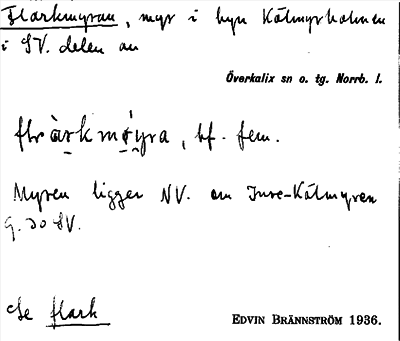 Flarkmyran, myr i byn Kälmyrholmen
i SV. delen av
Överkalix sn o. tg. Norrb. l.
flạrkmýra, bf. fem.
Myren ligger NV. om Inre-Kälmyren
G. 30 SV.
Se flark
EDVIN BRÄNNSTRÖM 1936.